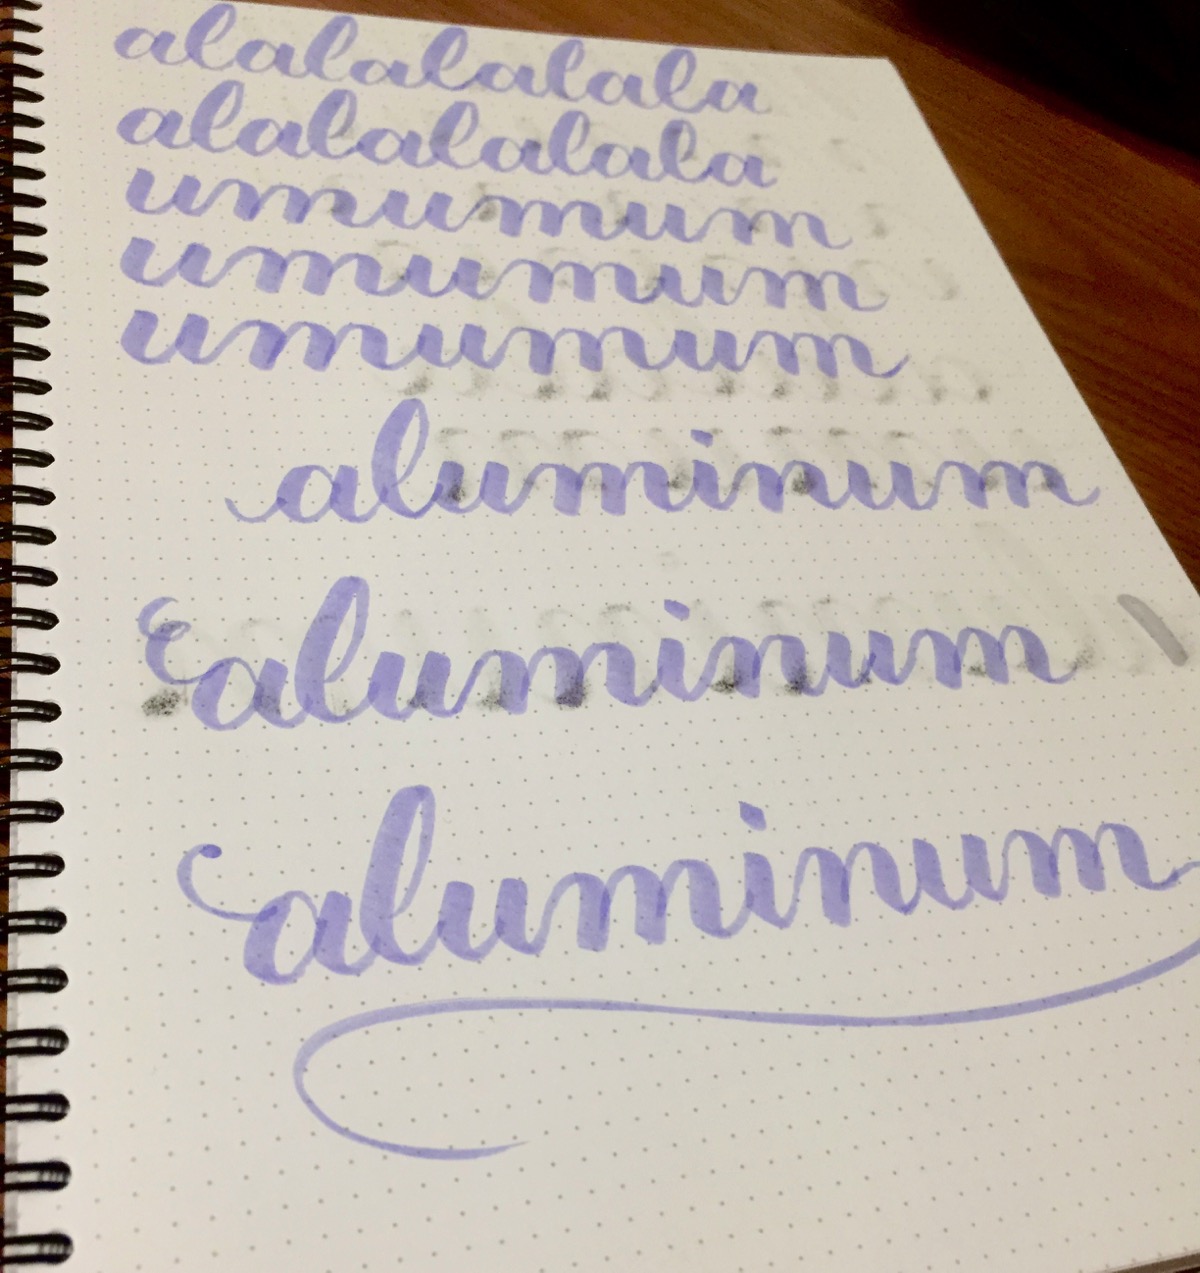 alalalalala
alalalalala
umumum
umumum
umumum
aluminum
aluminum
aluminum